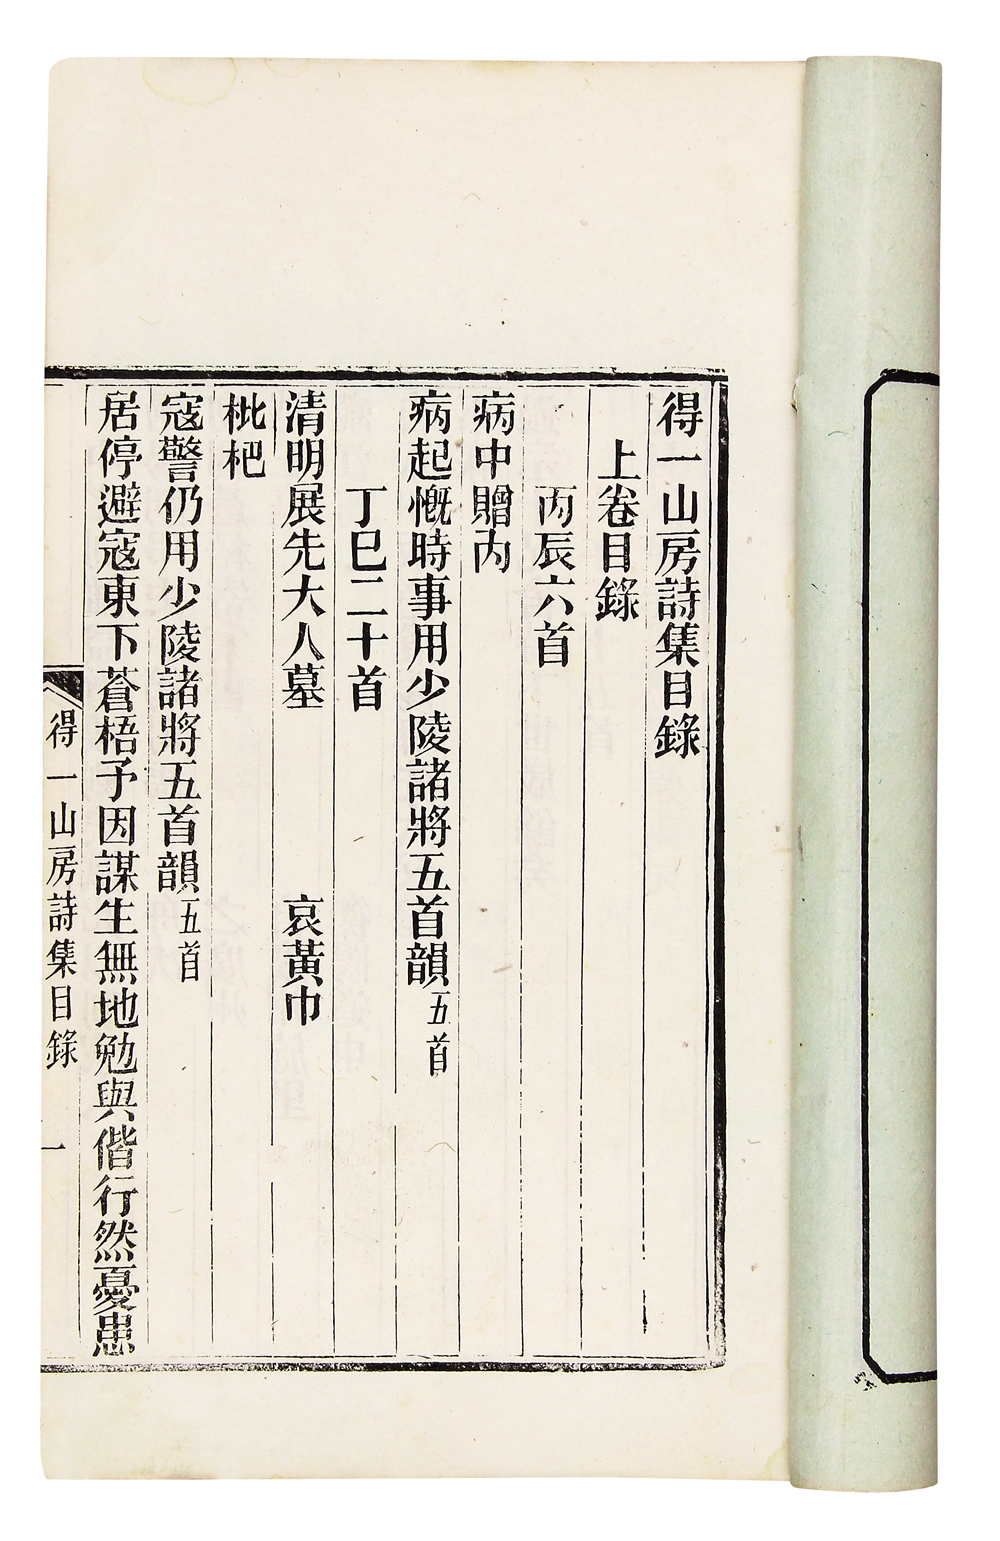 得一山房詩集目錄
上卷目錄
丙辰六首
病中贈內
病起慨時事用少陵諸將五首韻五首
丁巳二十首
清明展先大人墓 哀黃巾
枇杷
寇警仍用少陵諸將五首韻五首
居停避寇東下蒼梧予因謀生無地勉與偕行然憂患
得一山房詩集目錄 一